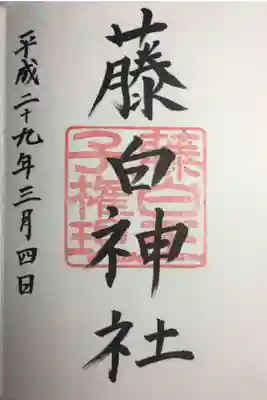 藤白神社
藤白王子権現
平成二十九年三月四日